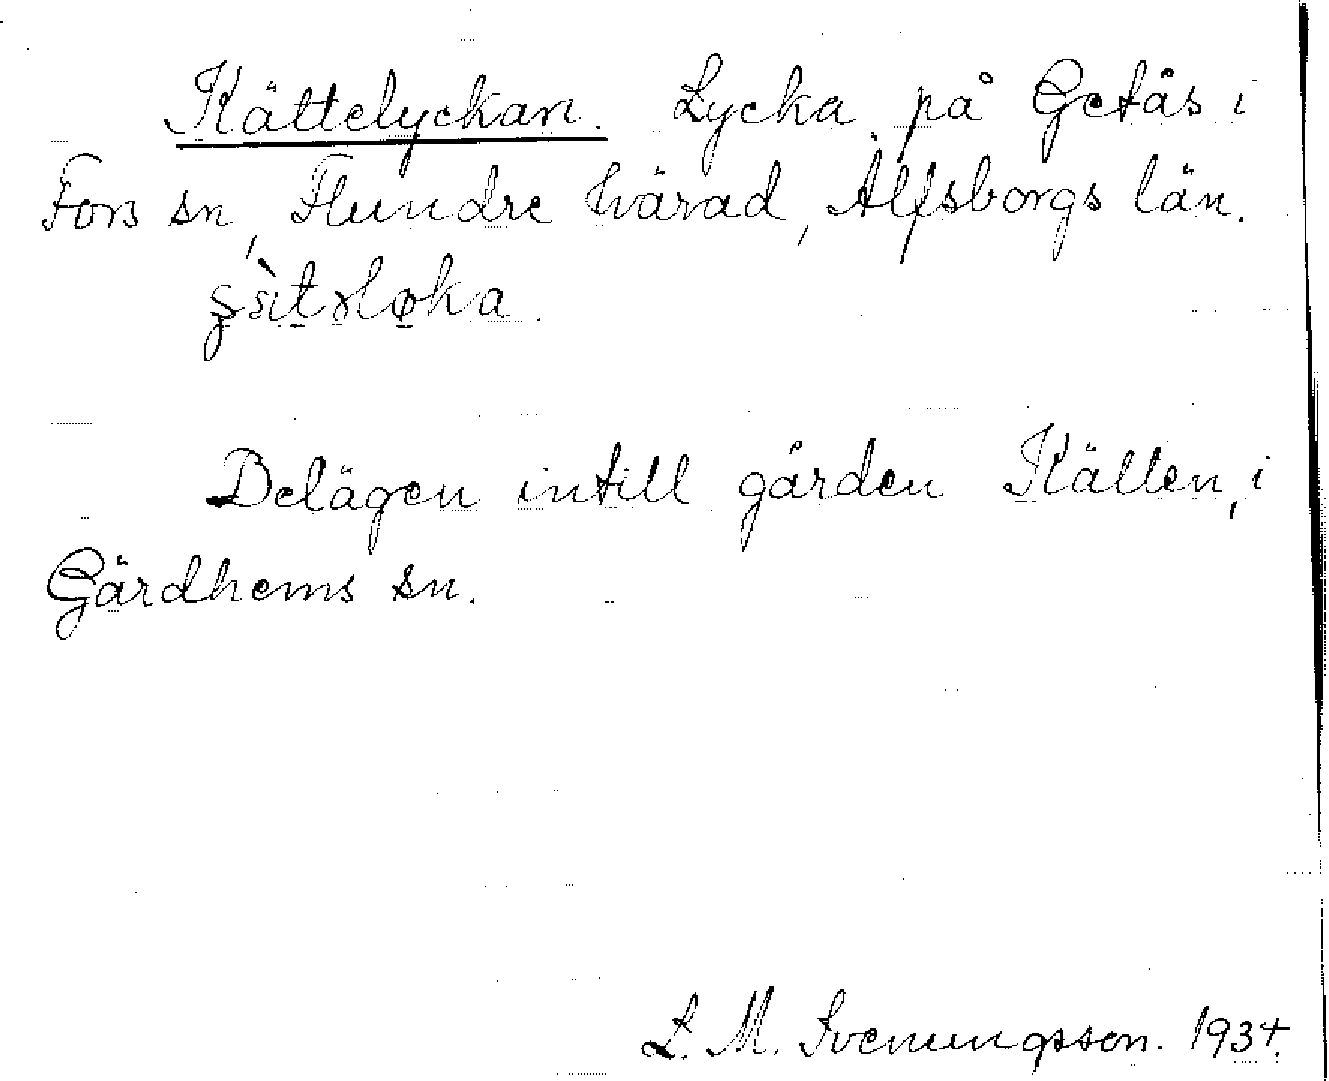 Kättelyckan. Lycka på Getås i
Fors sn, Flundre härad, Älfsborgs län.
Belägen intill gården Kätten, i
Gärdhems sn.
L. M. Svenungsson. 1934.